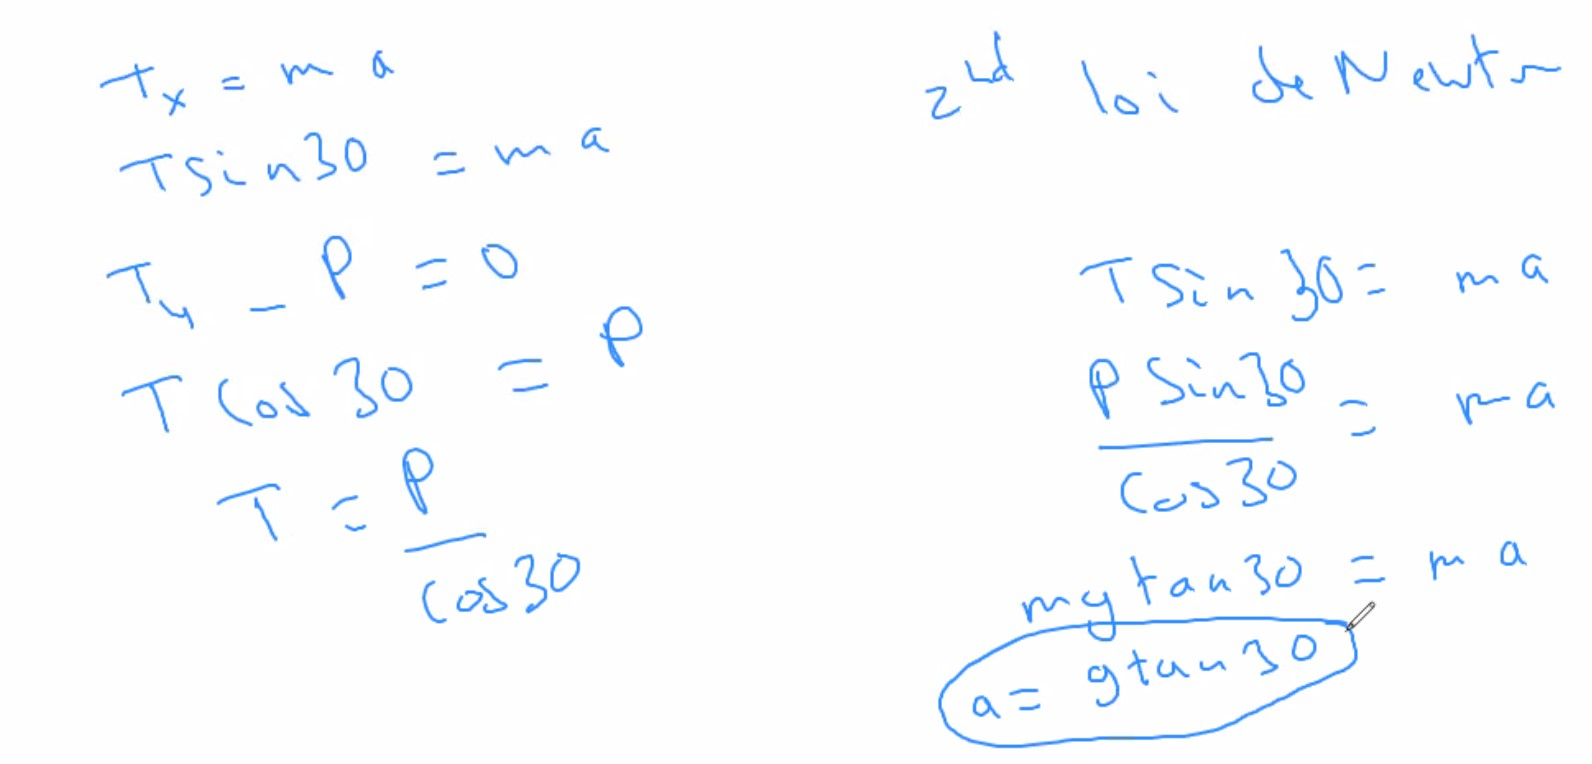 Tx = m a
T sin 30 = m a
Ty - P = 0
T cos 30 = P
T = P / cos 30
2nd loi de Newton
T sin 30 = m a
P sin 30 / cos 30 = m a
mg tan 30 = m a
a = g tan 30